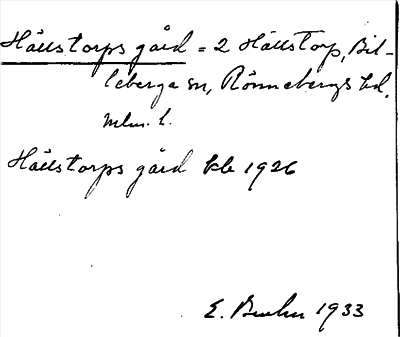 Hällstorps gård = 2 Hällstorp, Bil-
leberga sn, Rönnebergs hd,
Mlm. l.
Hällstorps gård kb 1926
E. Bruhn 1933